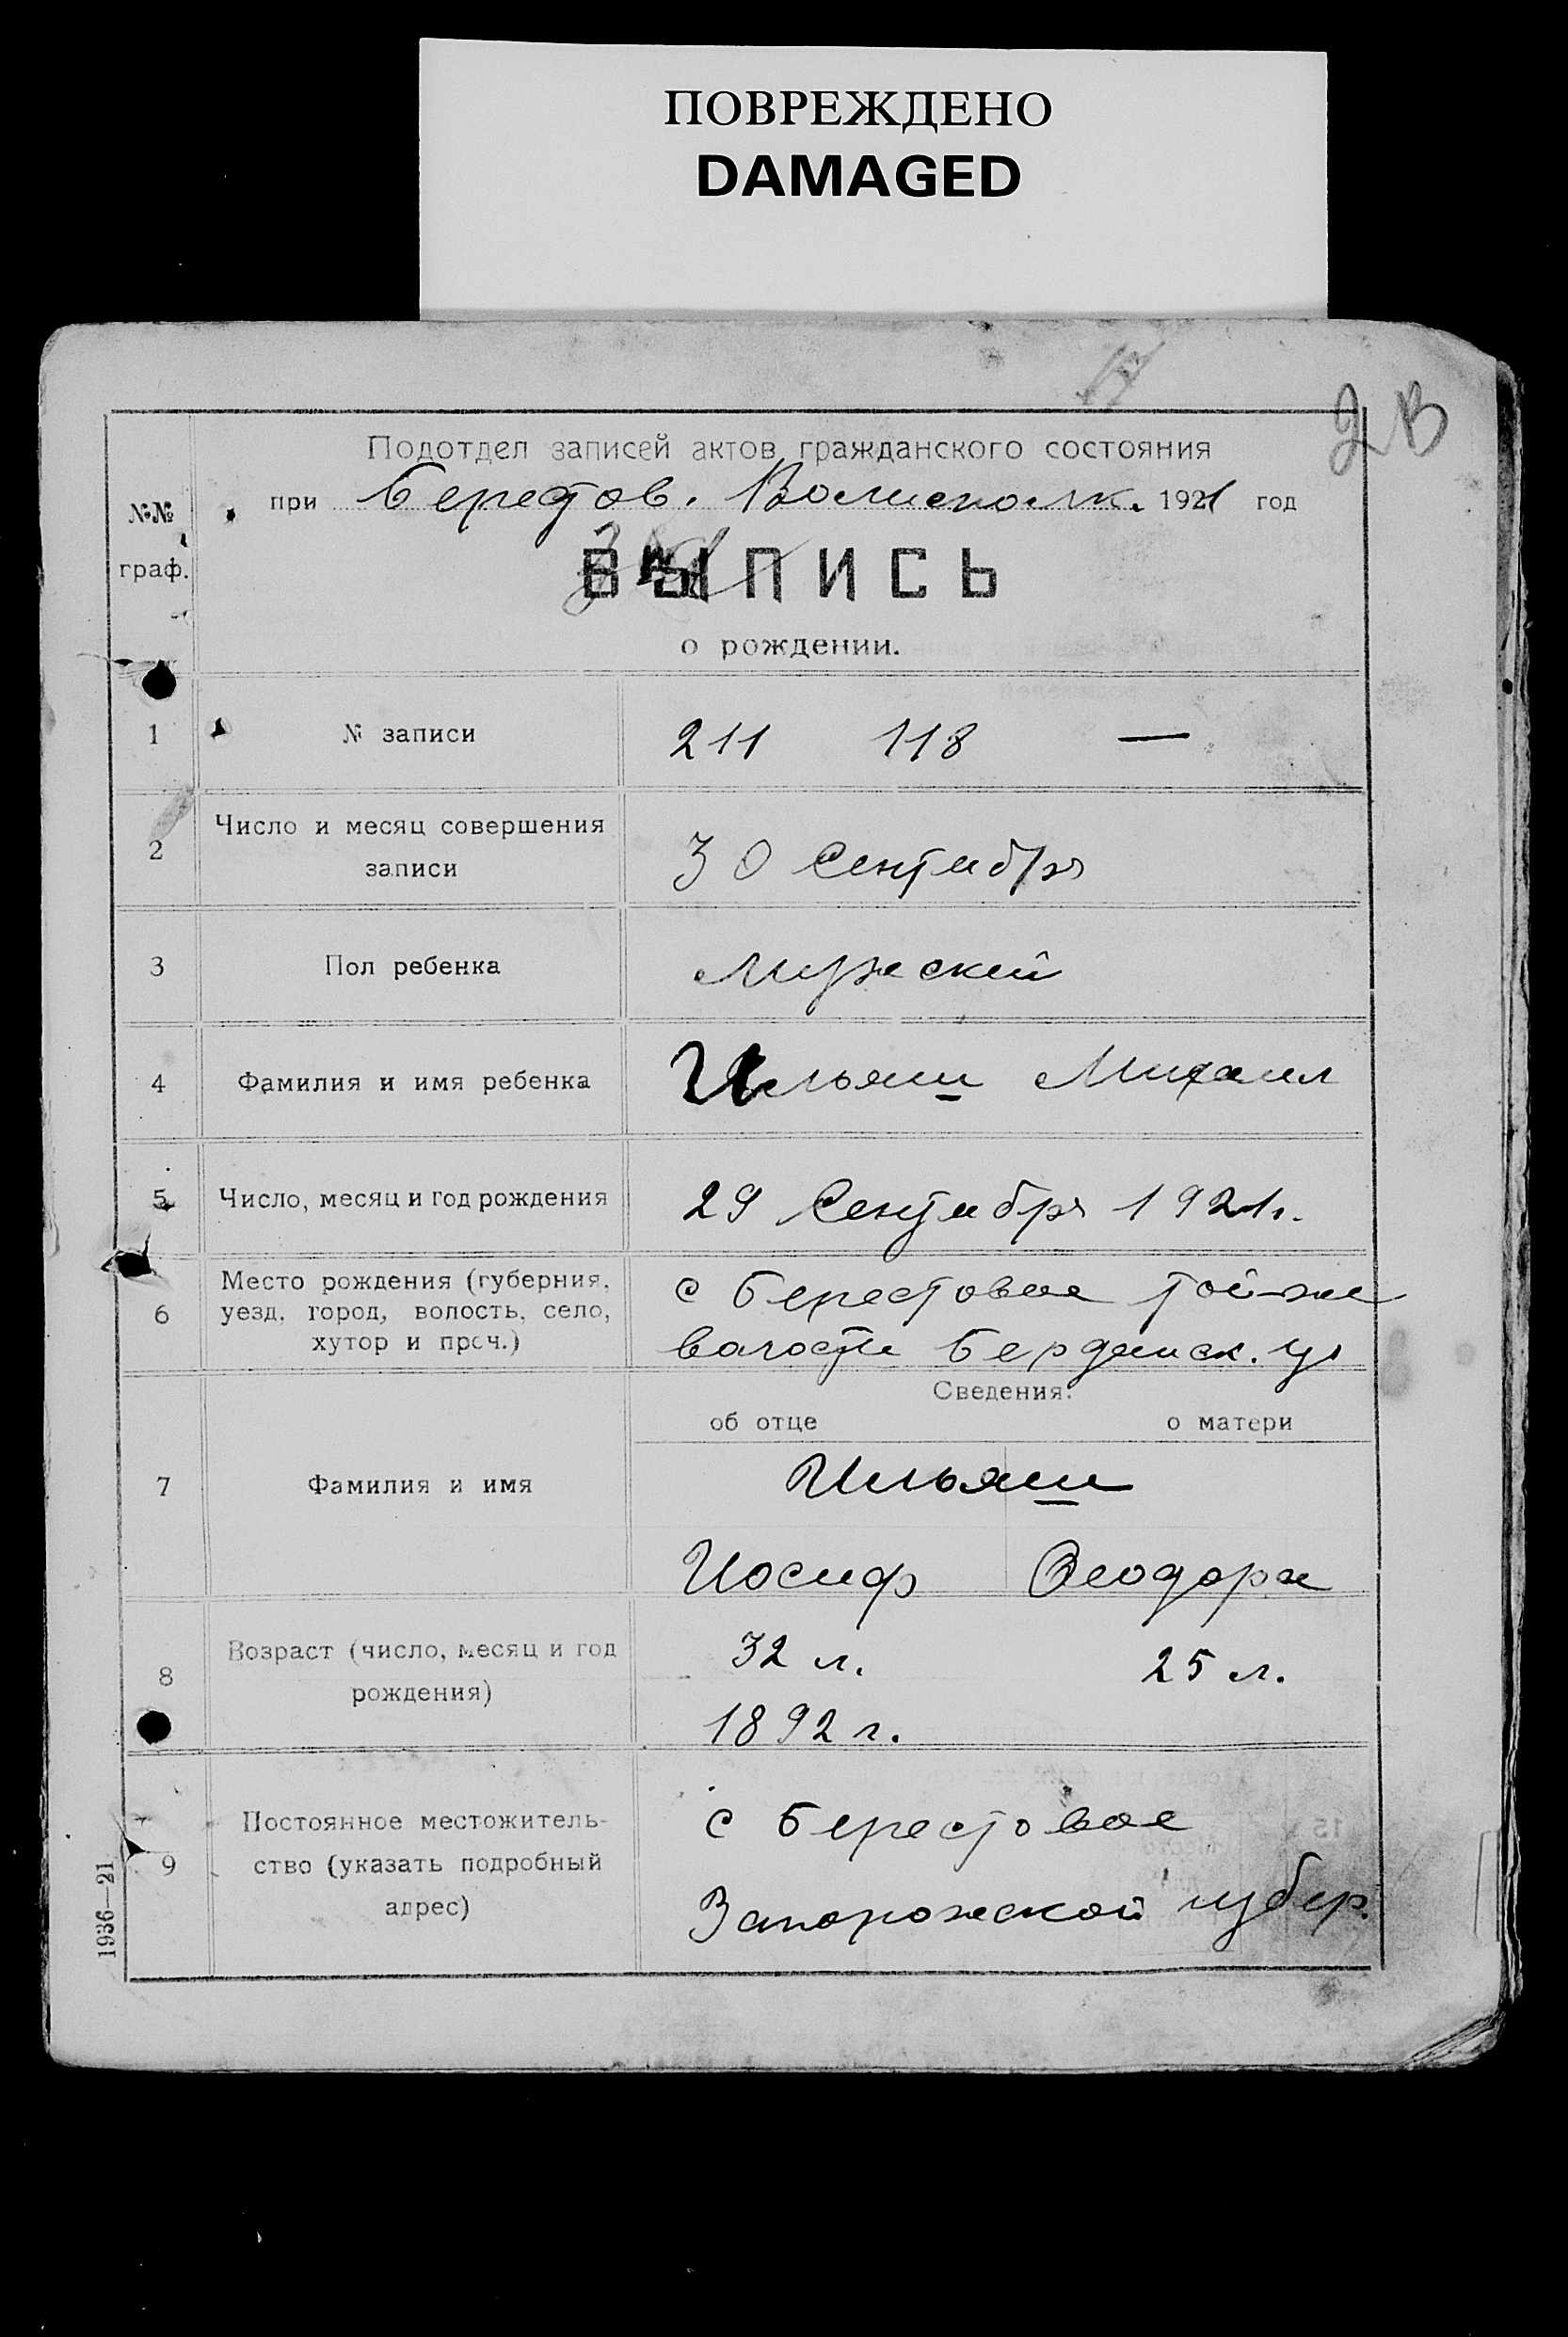 ПОВРЕЖДЕНО
DAMAGED
2В
Подотдел записей актов гражданского состояния
при Берестов. Волисполк. 1921 год
№№
граф.
ВЫПИСЬ
о рождении.
1 № записи 211 118 —
2 Число и месяц совершения
записи
30 Сентября
3 Пол ребенка мужеский
4 Фамилия и имя ребенка Ильяш Михаил
5 Число, месяц и год рождения 29 Сентября 1921г.
6 Место рождения (губерния,
уезд, город, волость, село,
хутор и проч.)
с Берестовое той-же
волости Бердянск. у
Сведения:
об отце о матери
7 Фамилия и имя Ильяш
Иосиф Феодора
8 Возраст (число, месяц и год
рождения)
32 л. 25 л.
1892 г.
9 Постоянное местожитель-
ство (указать подробный
адрес)
с Берестовое
Запорожской губер.
1936—21